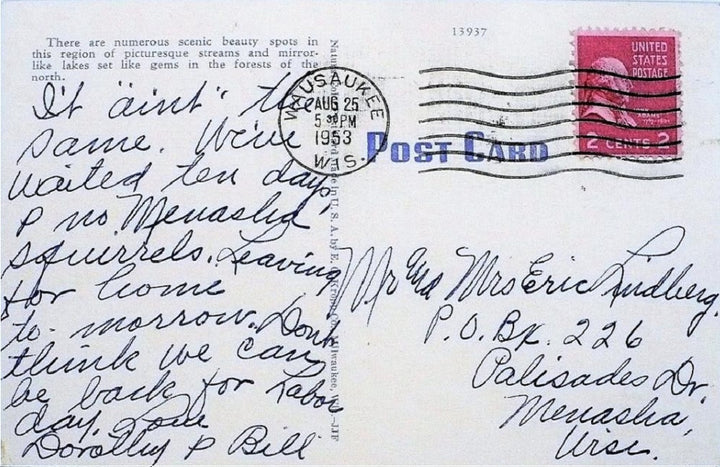 There are numerous scenic beauty spots in
this region of picturesque streams and mirror-
like lakes set like gems in the forests of the
north.
It "aint" the
same. We've
waited ten days
& no Menasha
squirrels. Leaving
for home
to-morrow. Don't
think we can
be back for Labor
day. Love
Dorothy & Bill
in U. S. A. by E. Milwaukee, JJF
13937
WAUSAUKEE
AUG 25
5 30 PM
1953
WIS.
UNITED
STATES
POSTAGE
JOHN
ADAMS
2 CENTS 2
POST CARD
Mr and Mrs Eric Lindberg,
P.O. Bx. 226
Palisades Dr.
Menasha,
Wisc.